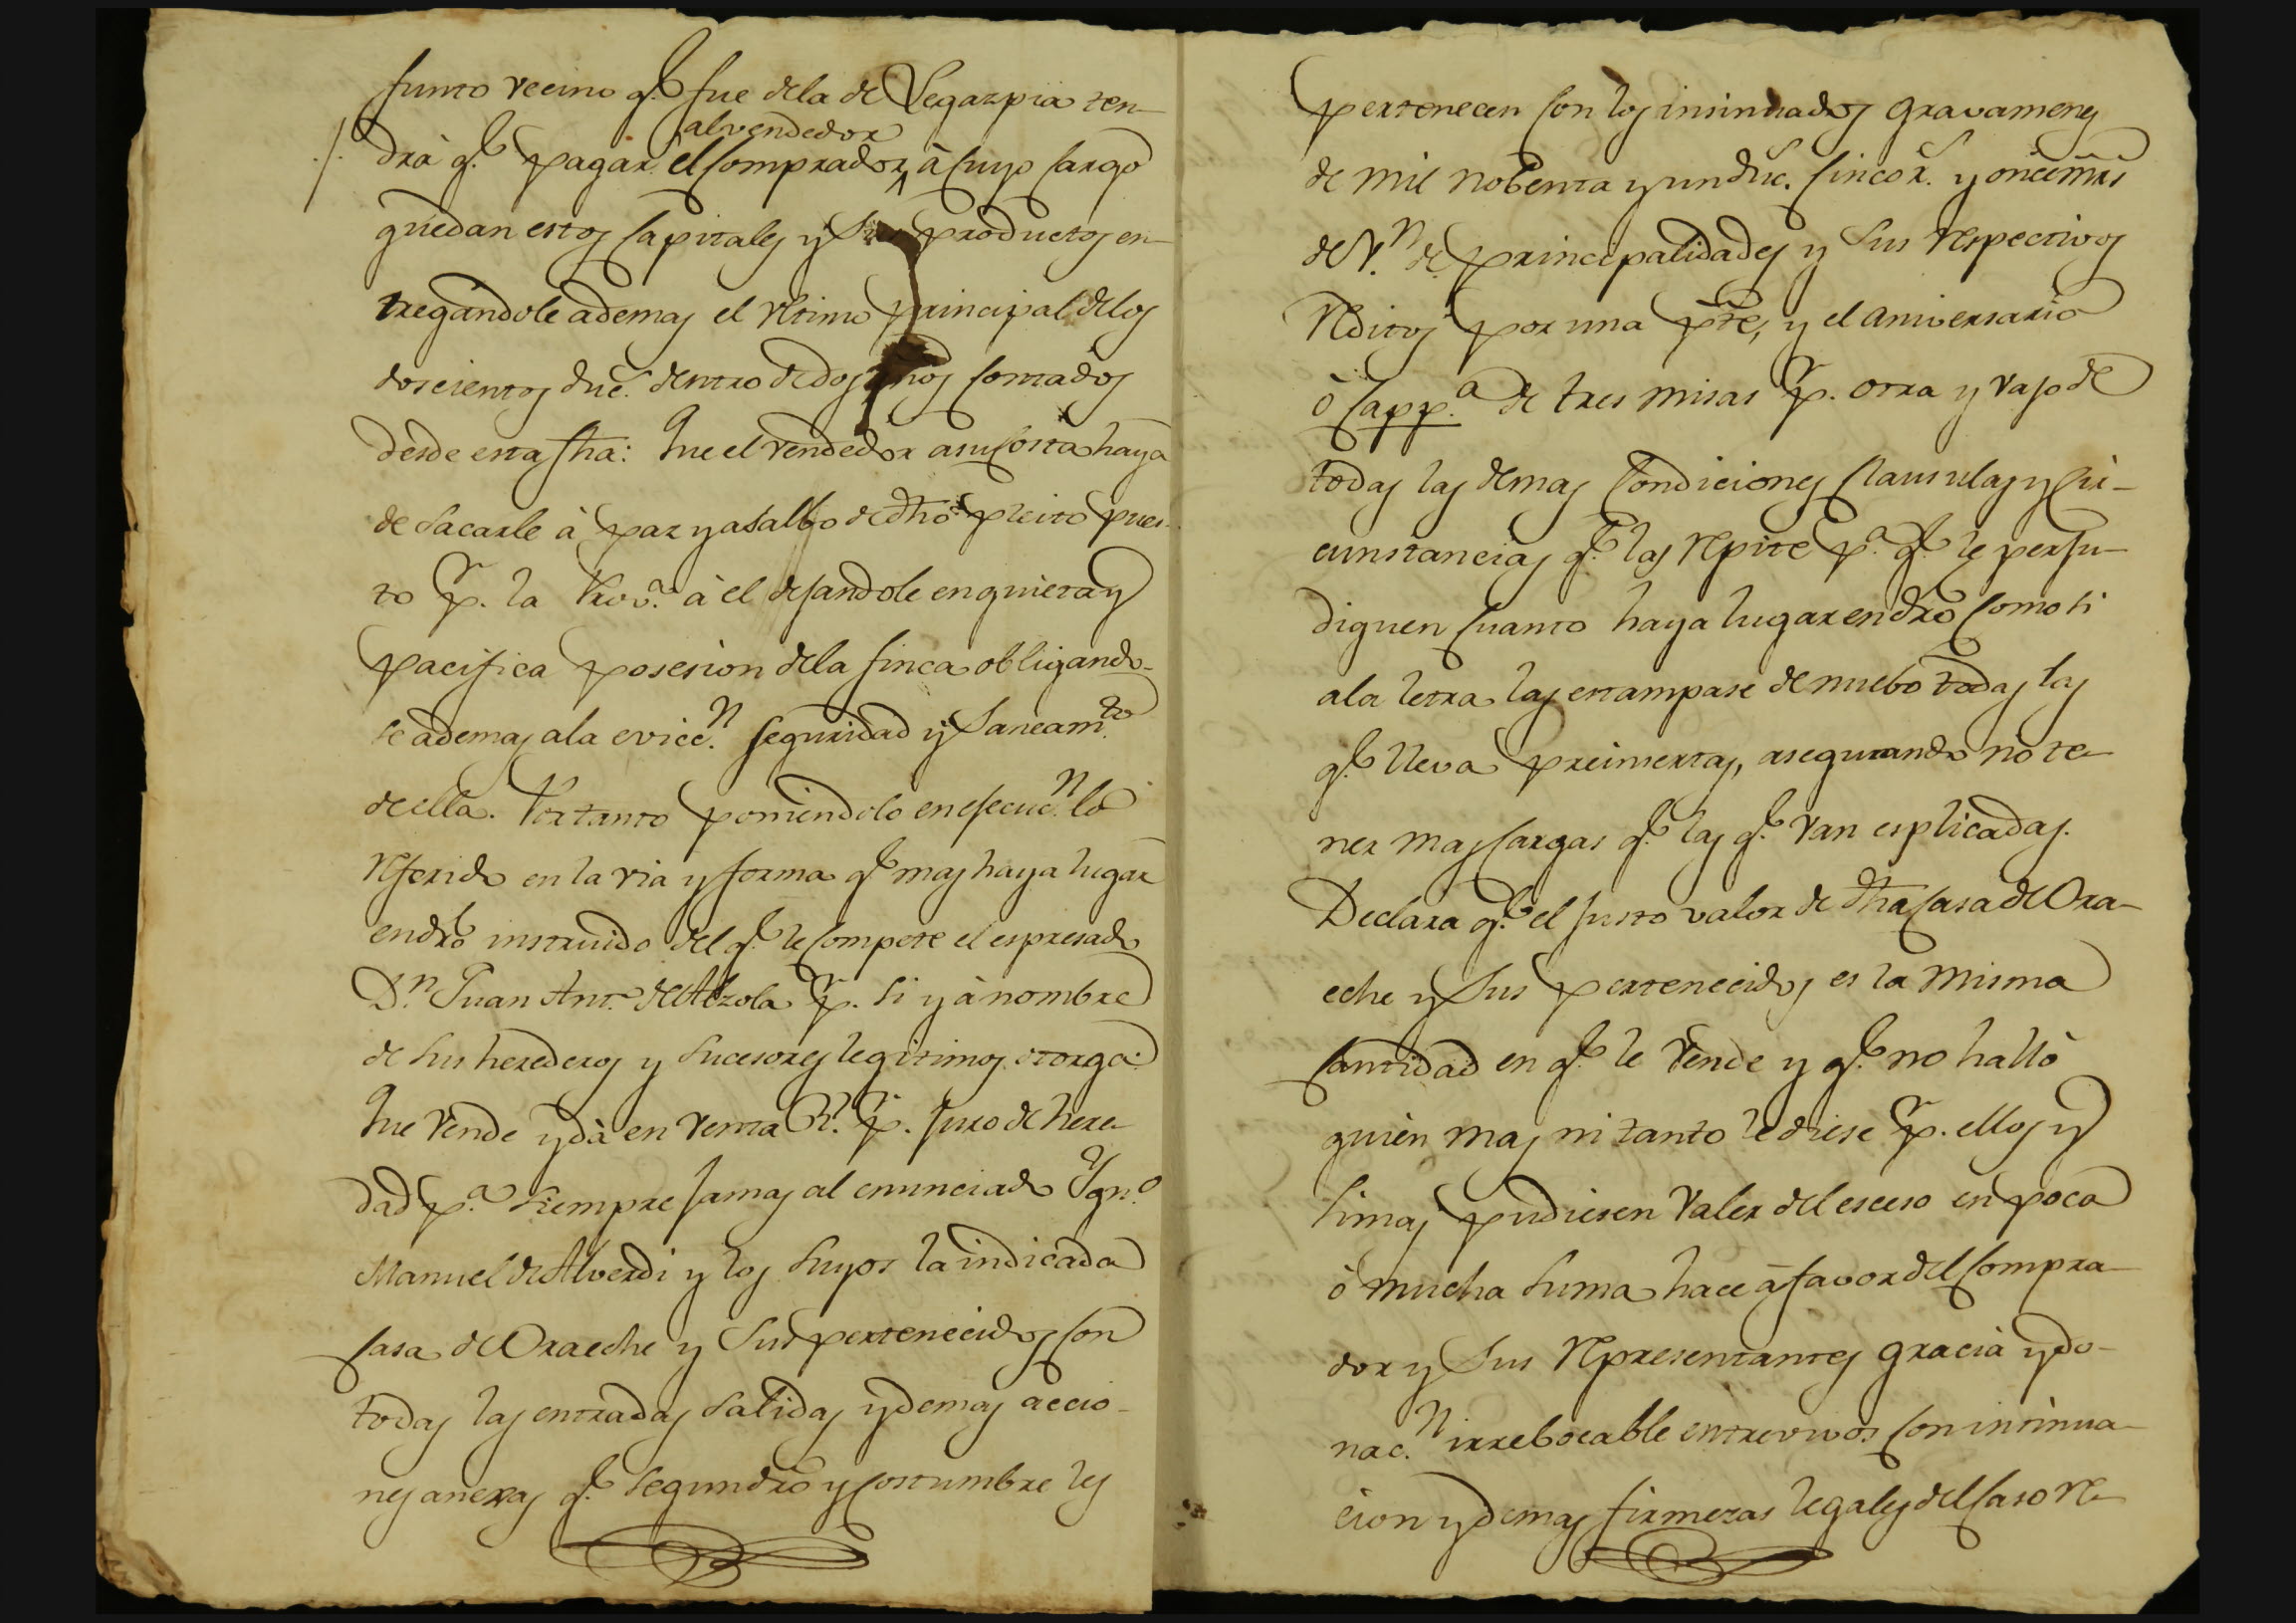 funto vecino q.e fue dela de Legazpia ten-
drá q.e pagar el comprador al vendedor à cuyo cargo
quedan estos capitales y sus productos en-
tregandole ademas el vltimo principal delos
doscientos duc.s dentro de dos años contados
desde esta fha: Que el vendedor asu costa haya
de sacarle à paz y asalbo de dho pleito pues-
to p.r la Prov.a à el dejandole en quieta y
pacifica posesion dela finca obligando-
se ademas ala evicc.n seguridad y saneam.to
de ella. Portanto poniendolo en ejecuc.n lo
referido en la via y forma q.e mas haya lugar
en dro instruido del q.e le compete el espresado
D.n Juan Ant.o de Alzola p.r si y à nombre
de sus herederos y sucesores legitimos otorga:
Que vende y dà en venta R.l p.r juro de here-
dad p.a siempre jamas al enunciado Ygn.o
Manuel de Alverdi y los suyos la indicada
casa de Oraeche y sus pertenecidos con
todas las entradas salidas y demas accio-
nes anexas q.e segun dro y costumbre les
pertenecen con los insinuados gravamenes
de mil nobenta y un duc.s cinco r.s y once mrs
de v.n de principalidades y sus respectivos
reditos por una pte, y el aniversario
ò capp.a de tres misas p.r otra y vajo de
todas las demas condiciones clausulas y cir-
cunstancias q.e las repite p.a q.e le perju-
diquen cuanto haya lugar en dro como si
ala letra las estampase de nuebo todas las
q.e lleva preinsertas, asegurando no te-
ner mas cargas q.e las q.e van esplicadas.
Declara q.e el justo valor de dha casa de Ora-
eche y sus pertenecidos es la misma
cantidad en q.e le vende y q.e no hallò
quien mas ni tanto le diese p.r ellos y
si mas pudiesen valer del esceso en poca
ò mucha suma hace à favor del compra-
dor y sus representantes gracia y do-
nac.n irrebocable entrevivos con insinua-
cion y demas firmezas legales del caso re-